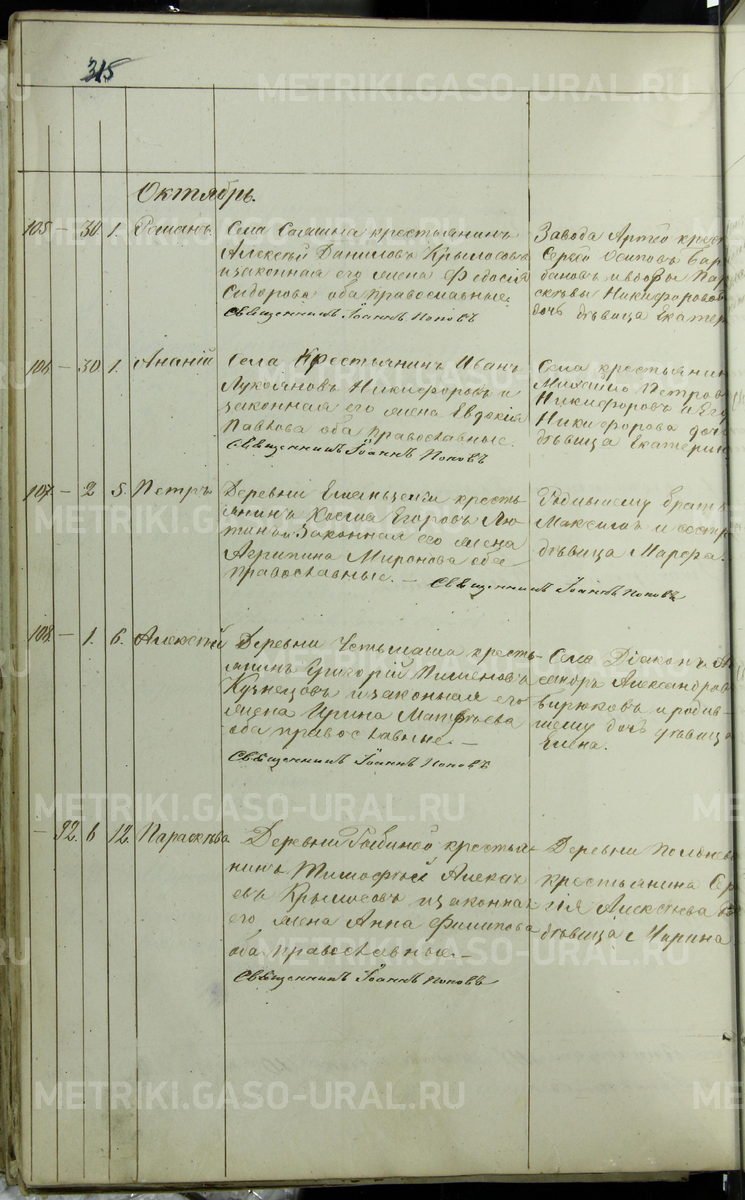 315
Октябрь.
105 — 30 1. Романъ.
Села Сажина крестьянинъ
Алексѣй Даниловъ Крылосовъ
и законная его жена Федосия
Сидорова оба православные.
Священникъ Іоаннъ Поповъ
Завода Артей крест
Сергѣй Осиповъ Бар
бановъ и вдовы Пар
скевы Никифоровой
дочь дѣвица Екатер
106 — 30 1. Ананій
Села Крестьянинъ Иванъ
Лукояновъ Никифоровъ и
законная его жена Евдокія
Павлова оба православные.
Священникъ Іоаннъ Поповъ
Села крестьянин
Михайло Петров
Никифоровъ и Его
Никифорова дочь
дѣвица Екатерин
107 — 2 5. Петръ
Деревни крестья
янинъ Косма Егоровъ
и законная его жена
Агрипина Миронова оба
православные. —
Священникъ Іоаннъ Поповъ
Родившему братъ
Максимъ и сестра
дѣвица Марфа.
108 — 1. 6. Алексѣй
Деревни Устьмаша кресть
янинъ Григорій Пименовъ
Кузнецовъ и законная его
жена Ирина Матвѣева
оба православные. —
Священникъ Іоаннъ Поповъ
Села Діаконъ Ал
сандръ Александров
Бирюковъ и родив
шему дочь дѣвица
Елена.
— 92. 6 12. Параскева.
Деревни крестья
нинъ Тимофѣй Алексѣ
евъ Крылосовъ и законная
его жена Анна Филипова
оба православные. —
Священникъ Іоаннъ Поповъ
Деревни
крестьянина Сер
гія Алексѣева
дѣвица Марина
METRIKI.GASO-URAL.RU